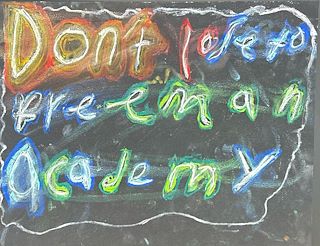 Don't lose to
freeman
academy